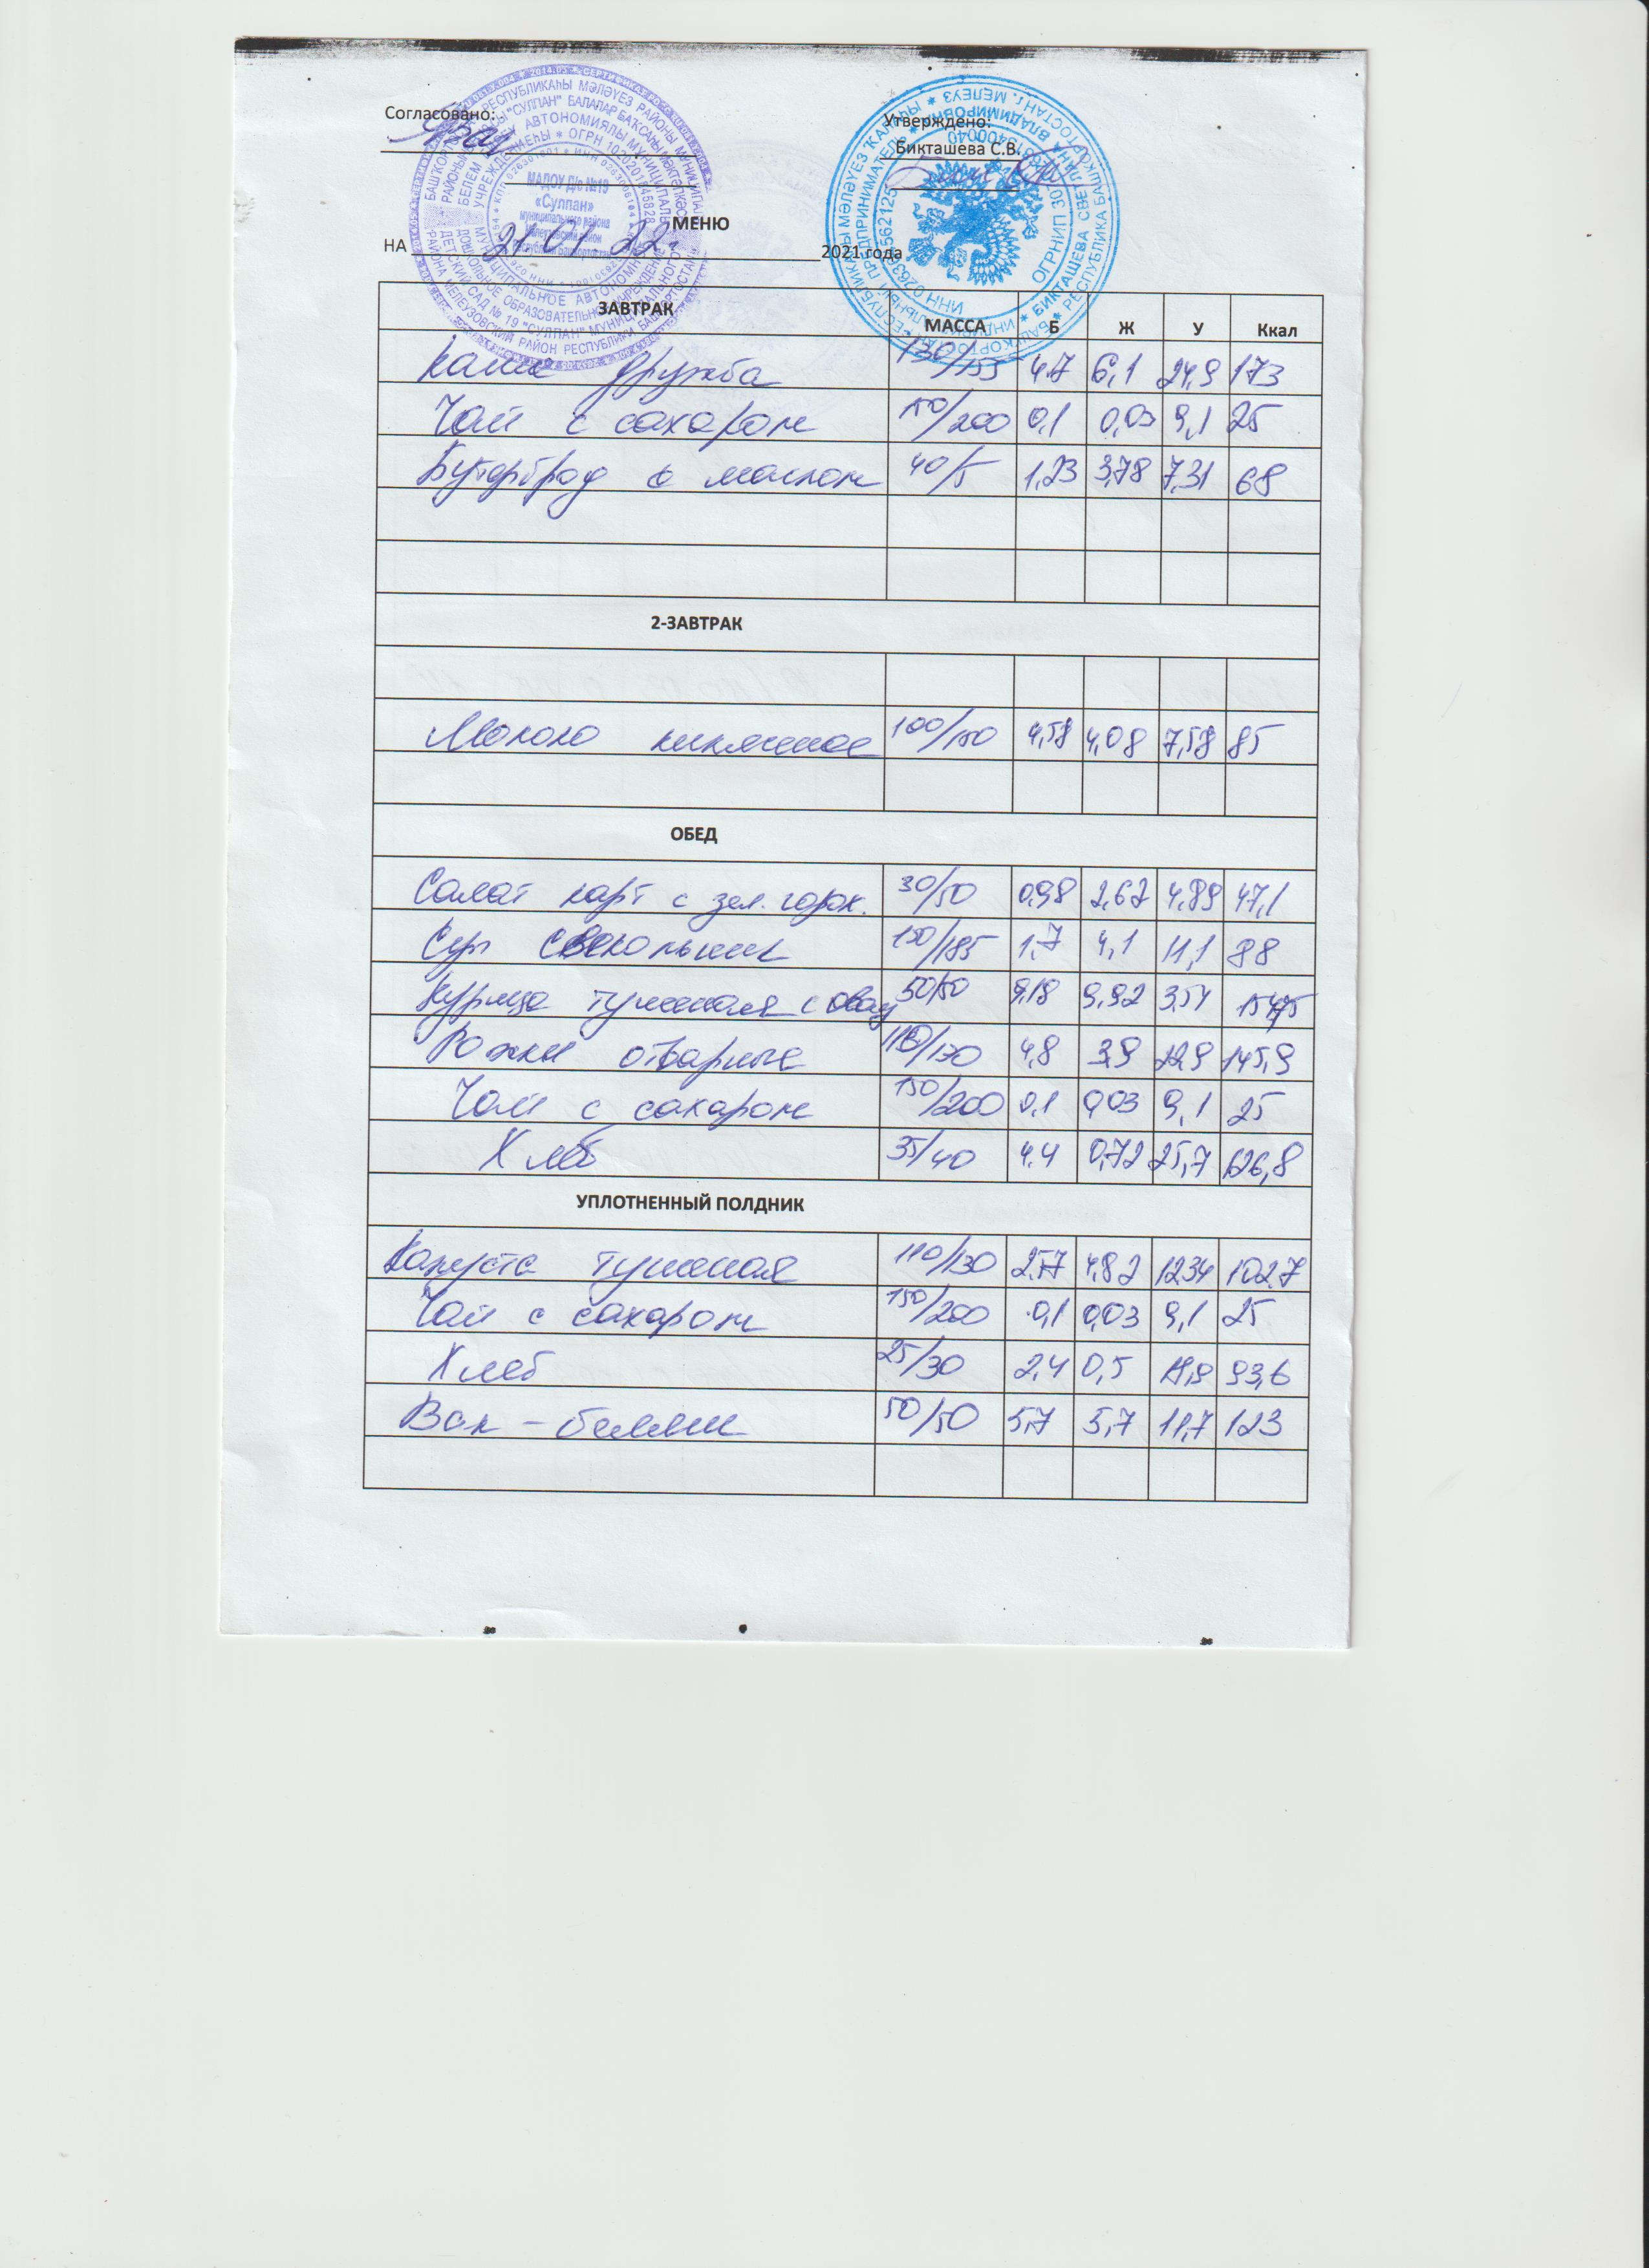 Согласовано:
Утверждено:
Бикташева С.В.
МЕНЮ
НА 21.01.22 г. 2021 года
ЗАВТРАК МАССА Б Ж У Ккал
Каша дружба 130/155 4.7 6,1 24,9 173
Чай с сахаром 150/200 0,1 0,03 9,1 25
Бутерброд с маслом 40/5 1,23 3,78 7,31 68
2-ЗАВТРАК
Молоко кипяченое 100/150 4,58 4,08 7,58 85
ОБЕД
Салат карт с зел. горох. 30/50 0,98 2,62 4,89 47,1
Суп свекольник 150/185 1,7 4,1 11,1 88
Курица тушеная с овощ 50/50 9,18 9,92 3,54
Рожки отварные 110/130 4,8 3,9 22,9 145,9
Чай с сахаром 150/200 0,1 0,03 9,1 25
Хлеб 35/40 4.4 0,72 25,7 126,8
УПЛОТНЕННЫЙ ПОЛДНИК
Капуста тушеная 110/130 2,57 4,82 12,34 102,7
Чай с сахаром 150/200 0,1 0,03 9,1 25
Хлеб 25/30 2,4 0,5 93,6
Вак - беляш 50/50 5,7 5,7 11,7 123
МАДОУ Д/с №19
«Сулпан»
муниципального района